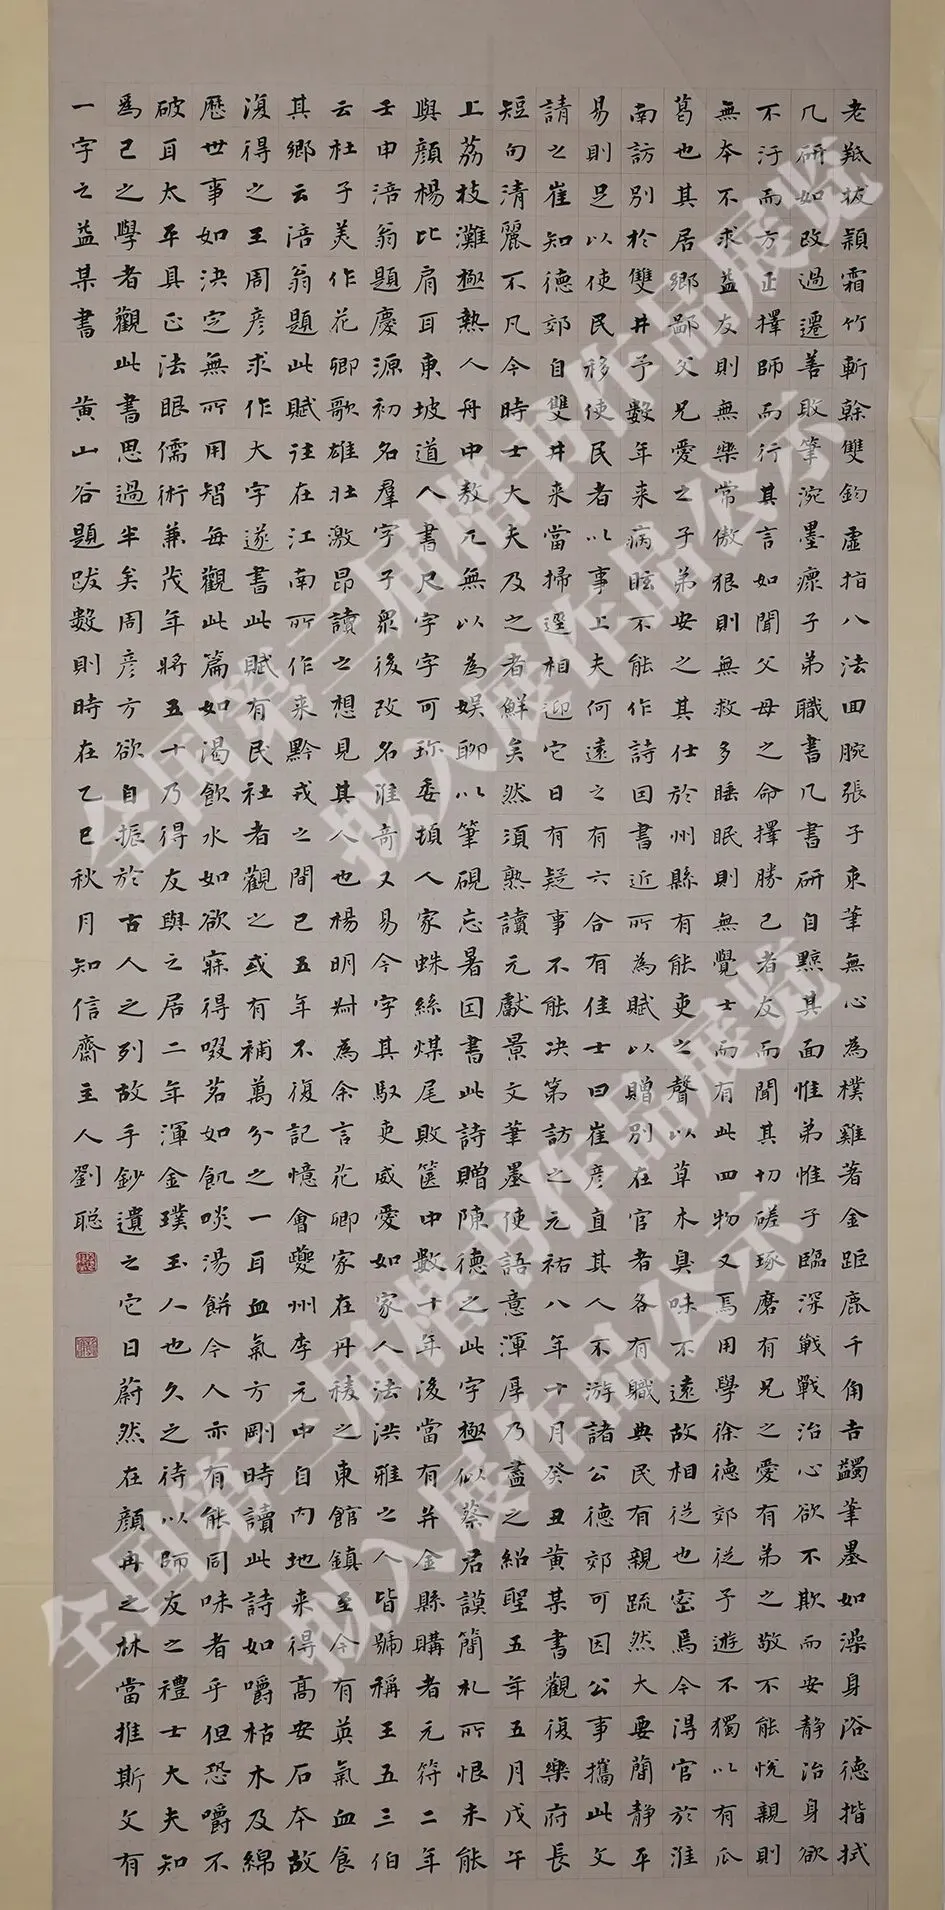 老羝拔穎霜竹斬幹雙鈎虛指八法回腕張子束筆無心為樸雞著金距鹿千角吉蠲筆墨如澡身浴德揩拭
几研如改過遷善敗筆涴墨瘝子弟職書几書研自黥其面惟弟惟子臨深戰戰治心欲不欺而安靜治身欲
不汙而方正擇師而行其言如聞父母之命擇勝己者友而聞其切磋琢磨有兄之愛有弟之敬不能悅親則
無本不求益友則無樂常傲狠則無救多睡眠則無覺士而有此四物又焉用學徐德郊從予遊不獨以有瓜
葛也其居鄉鄙父兄愛之子弟安之其仕於州縣有能吏之聲以草木臭味不遠故相從也密焉今得官於淮
南訪別於雙井予數年來病眩不能作詩因書近所為賦以贈別在官者各有職典民有親疏然大要簡靜平
易則足以使民移使民者以事上夫何遠之有六合有佳士曰崔彦直其人不游諸公德郊可因公事攜此文
請之崔知德郊自雙井来當掃逕相迎它日有疑事不能決第訪之元祐八年十月癸丑黄某書觀復樂府長
短句清麗不凡今時士大夫及之者鮮矣然須熟讀元獻景文筆墨使語意渾厚乃盡之紹聖五年五月戊午
上荔枝灘極熱人舟中敖兀無以為娱聊以筆硯忘暑因書此詩贈陳德之此字極似蔡君謨簡札所恨未能
與顏楊比肩耳東坡道人書尺字字可珎委頓人家蛛絲煤尾敗篋中數十年後當有并金縣購者元符二年
壬申涪翁題慶源初名羣字子衆後改名淮奇又易今字其馭吏威愛如家人法洪雅之人皆號稱王五三伯
云杜子美作花卿歌雄壯激昂讀之想見其人也楊明叔為余言花卿家在丹稜之東館鎮至今有英氣血食
其鄉云涪翁題此賦往在江南所作来黔戎之間已五年不復記憶會夔州李元中自内地来得高安石本故
復得之王周彦求作大字遂書此賦有民社者觀之或有補萬分之一耳血氣方剛時讀此詩如嚼枯木及綿
歷世事如決定無所用智每觀此篇如渴飲水如欲寐得啜茗如飢啖湯餅今人亦有能同味者乎但恐嚼不
破耳太平具正法眼儒術兼茂年將五十乃得友與之居二年渾金璞玉人也久之待以師友之禮士大夫知
爲己之學者觀此書思過半矣周彦方欲自振於古人之列故手鈔遺之它日蔚然在顏冉之林當推斯文有
一字之益某書 黄山谷題跋數則時在乙巳秋月知信齋主人劉聪
全国第三届楷书作品展览
拟入展作品公示
全国第三届楷书作品展览
拟入展作品公示